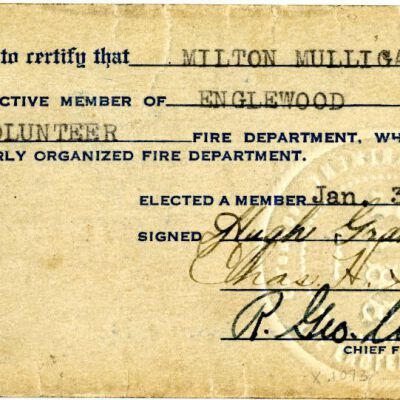 to certify that MILTON MULLIGA
CTIVE MEMBER OF ENGLEWOOD
OLUNTEER FIRE DEPARTMENT, WH
RLY ORGANIZED FIRE DEPARTMENT.
ELECTED A MEMBER Jan. 3
SIGNED Hugh Gra
Chas. H.
R. Geo.
CHIEF F
X 1093